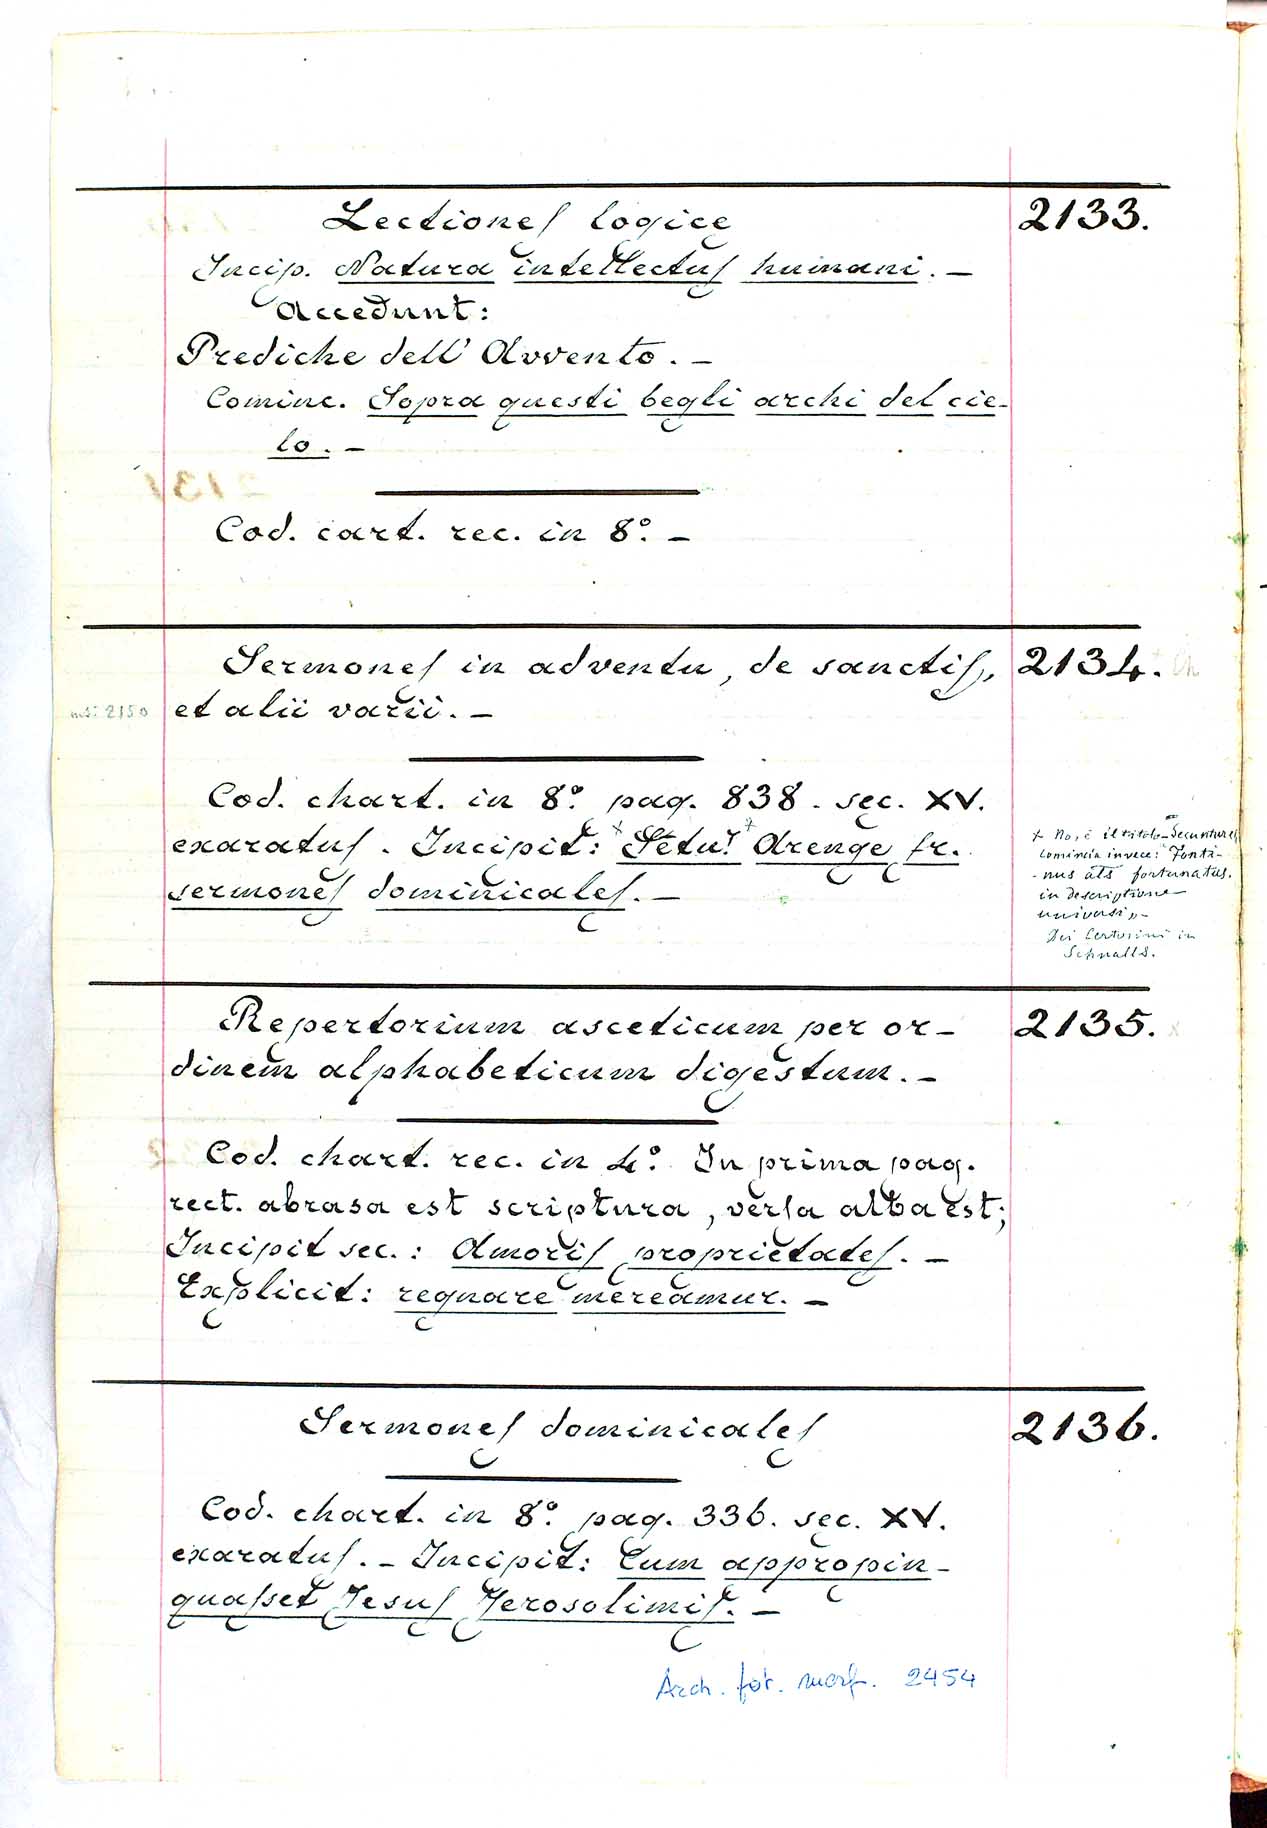 Lectiones logice 2133.
Incip. Natura intellectus humani. –
Accedunt:
Prediche dell' Avvento. –
Cominc. Sopra questi begli archi del cie-
lo. –
Cod. cart. rec. in 8.º –
Sermones in adventu, de sanctis, 2134.
msi 2150 et alii varii. –
Cod. chart. in 8.º pag. 838. sec. XV.
exaratus. Incipit: Arenge fr.
sermones dominicales. –
x No, è il titolo
comincia invece: Fonta-
nus als fortunatus.
in descriptione
universi„ –
Dei Certosini in
Schnalls.
Repertorium asceticum per or- 2135.
dinem alphabeticum digestum. –
Cod. chart. rec. in 4.º In prima pag.
rect. abrasa est scriptura, versa alba est;
Incipit sec.: Amoris proprietates. –
Explicit: regnare mereamur. –
Sermones dominicales 2136.
Cod. chart. in 8.º pag. 336. sec. XV.
exaratus. – Incipit: Cum appropin-
quasset Jesus Jerosolimis. –
Arch. fot. 2454